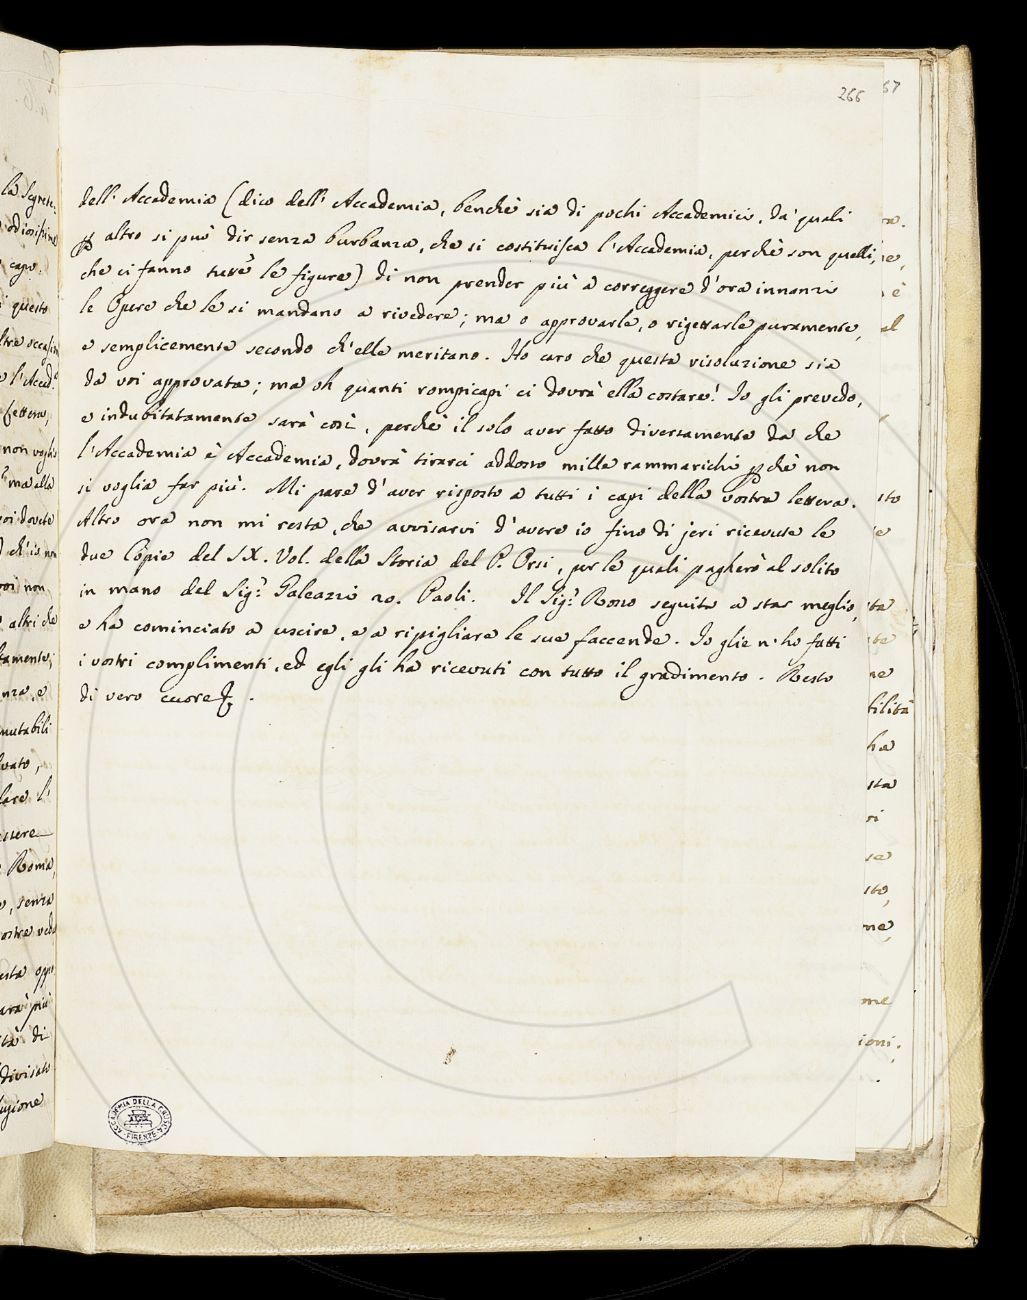 266
dell' Accademia (dico dell' Accademia, benchè sia di pochi Accademici, da' quali
per altro si può dir senza burbanza, che si costituisca l'Accademia, perchè son quelli,
che ci fanno tutte le figure) di non prender più a correggere d'ora innanzi
le Opere che le si mandano a rivedere; ma o approvarle, o rigettarle puramente,
e semplicemente secondo ch'elle meritano. Ho caro che questa risoluzione sia
da voi approvata; ma oh quanti rompicapi ci dovrà ella costare! Io gli prevedo,
e indubitatamente sarà così, perchè il solo aver fatto diversamente da che
l'Accademia è Accademia, dovrà tirarci addosso mille rammarichi perchè non
si voglia far più. Mi pare d'aver risposto a tutti i capi della vostra lettera.
Altro ora non mi resta, che avvisarvi d'avere io fino di jeri ricevute le
due Copie del IX. Vol. della Storia del P. Orsi, per le quali pagherò al solito
in mano del Sig.r Galeazzi 20. Paoli. Il Sig.r Rosso seguita a star meglio,
e ha cominciato a uscire, e a ripigliare le sue faccende. Io glie n'ho fatti
i vostri complimenti, ed egli gli ha ricevuti con tutto il gradimento. Resto
di vero cuore
ACCADEMIA DELLA CRUSCA
FIRENZE